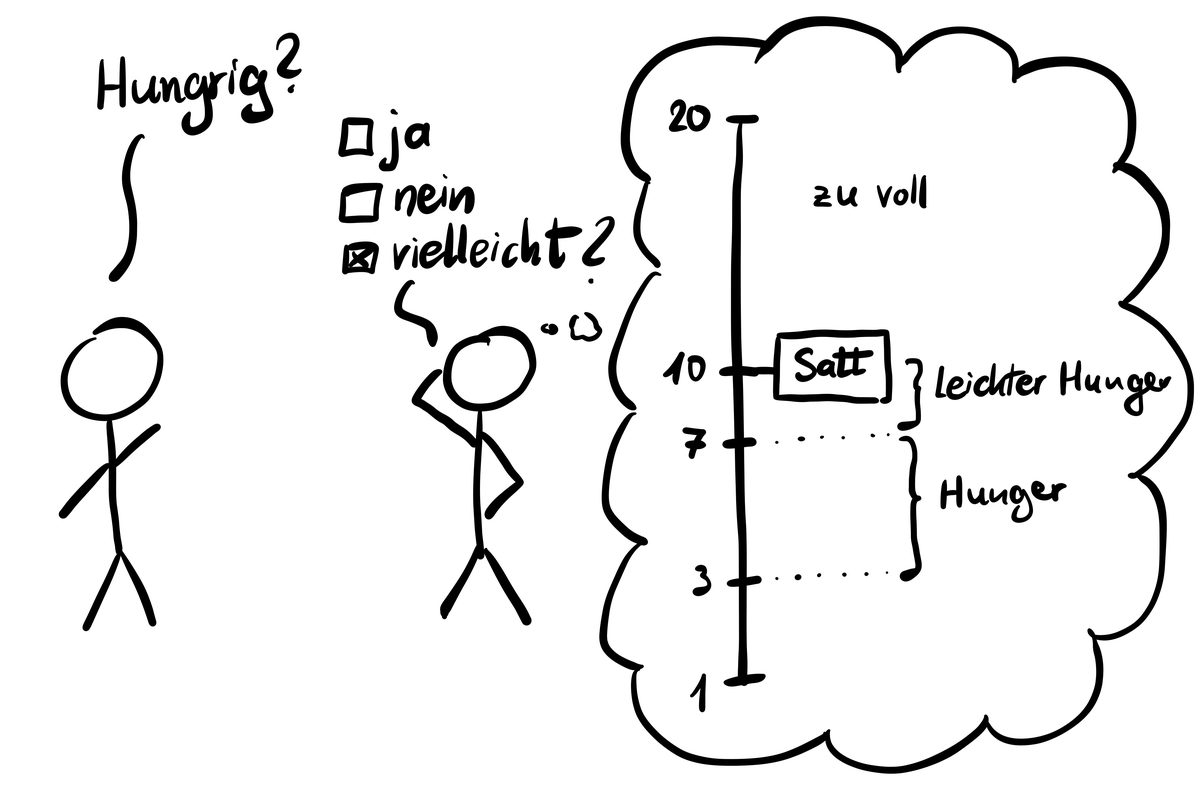 Hungrig?
ja
nein
vielleicht?
20
zu voll
10
Satt
Leichter Hunger
7
Hunger
3
1